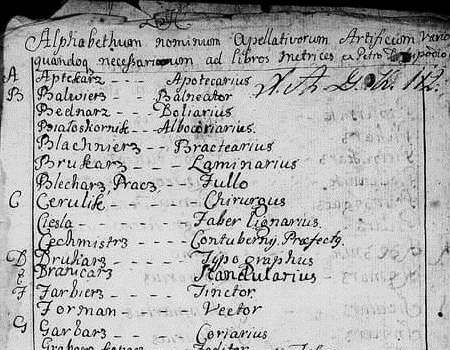 Alphabethum nominum Apellativorum Artificum Vario
quandoq necessarionum ad libros metrices ex Petro
A Aptekarz - - Apotecarius
B Balwierz - - Balneator
Bednarz - - Doliarius
Białoskornik - - Albocoriarius.
Blachnierz - - Bractearius
Brukarz - - - Laminarius
Blecharz, Pracz - - - Fullo
C Cerulik - - - - Chirurgus
Ciesla Faber lignarius.
Cechmistrz - - - - Contubernij Præfectg.
D Drukarz - - - Typographus
Branicarz Mandularius
F Farbierz - - - - Tinctor.
Forman - - - - Vector
G Garbarz - - - Coriarius